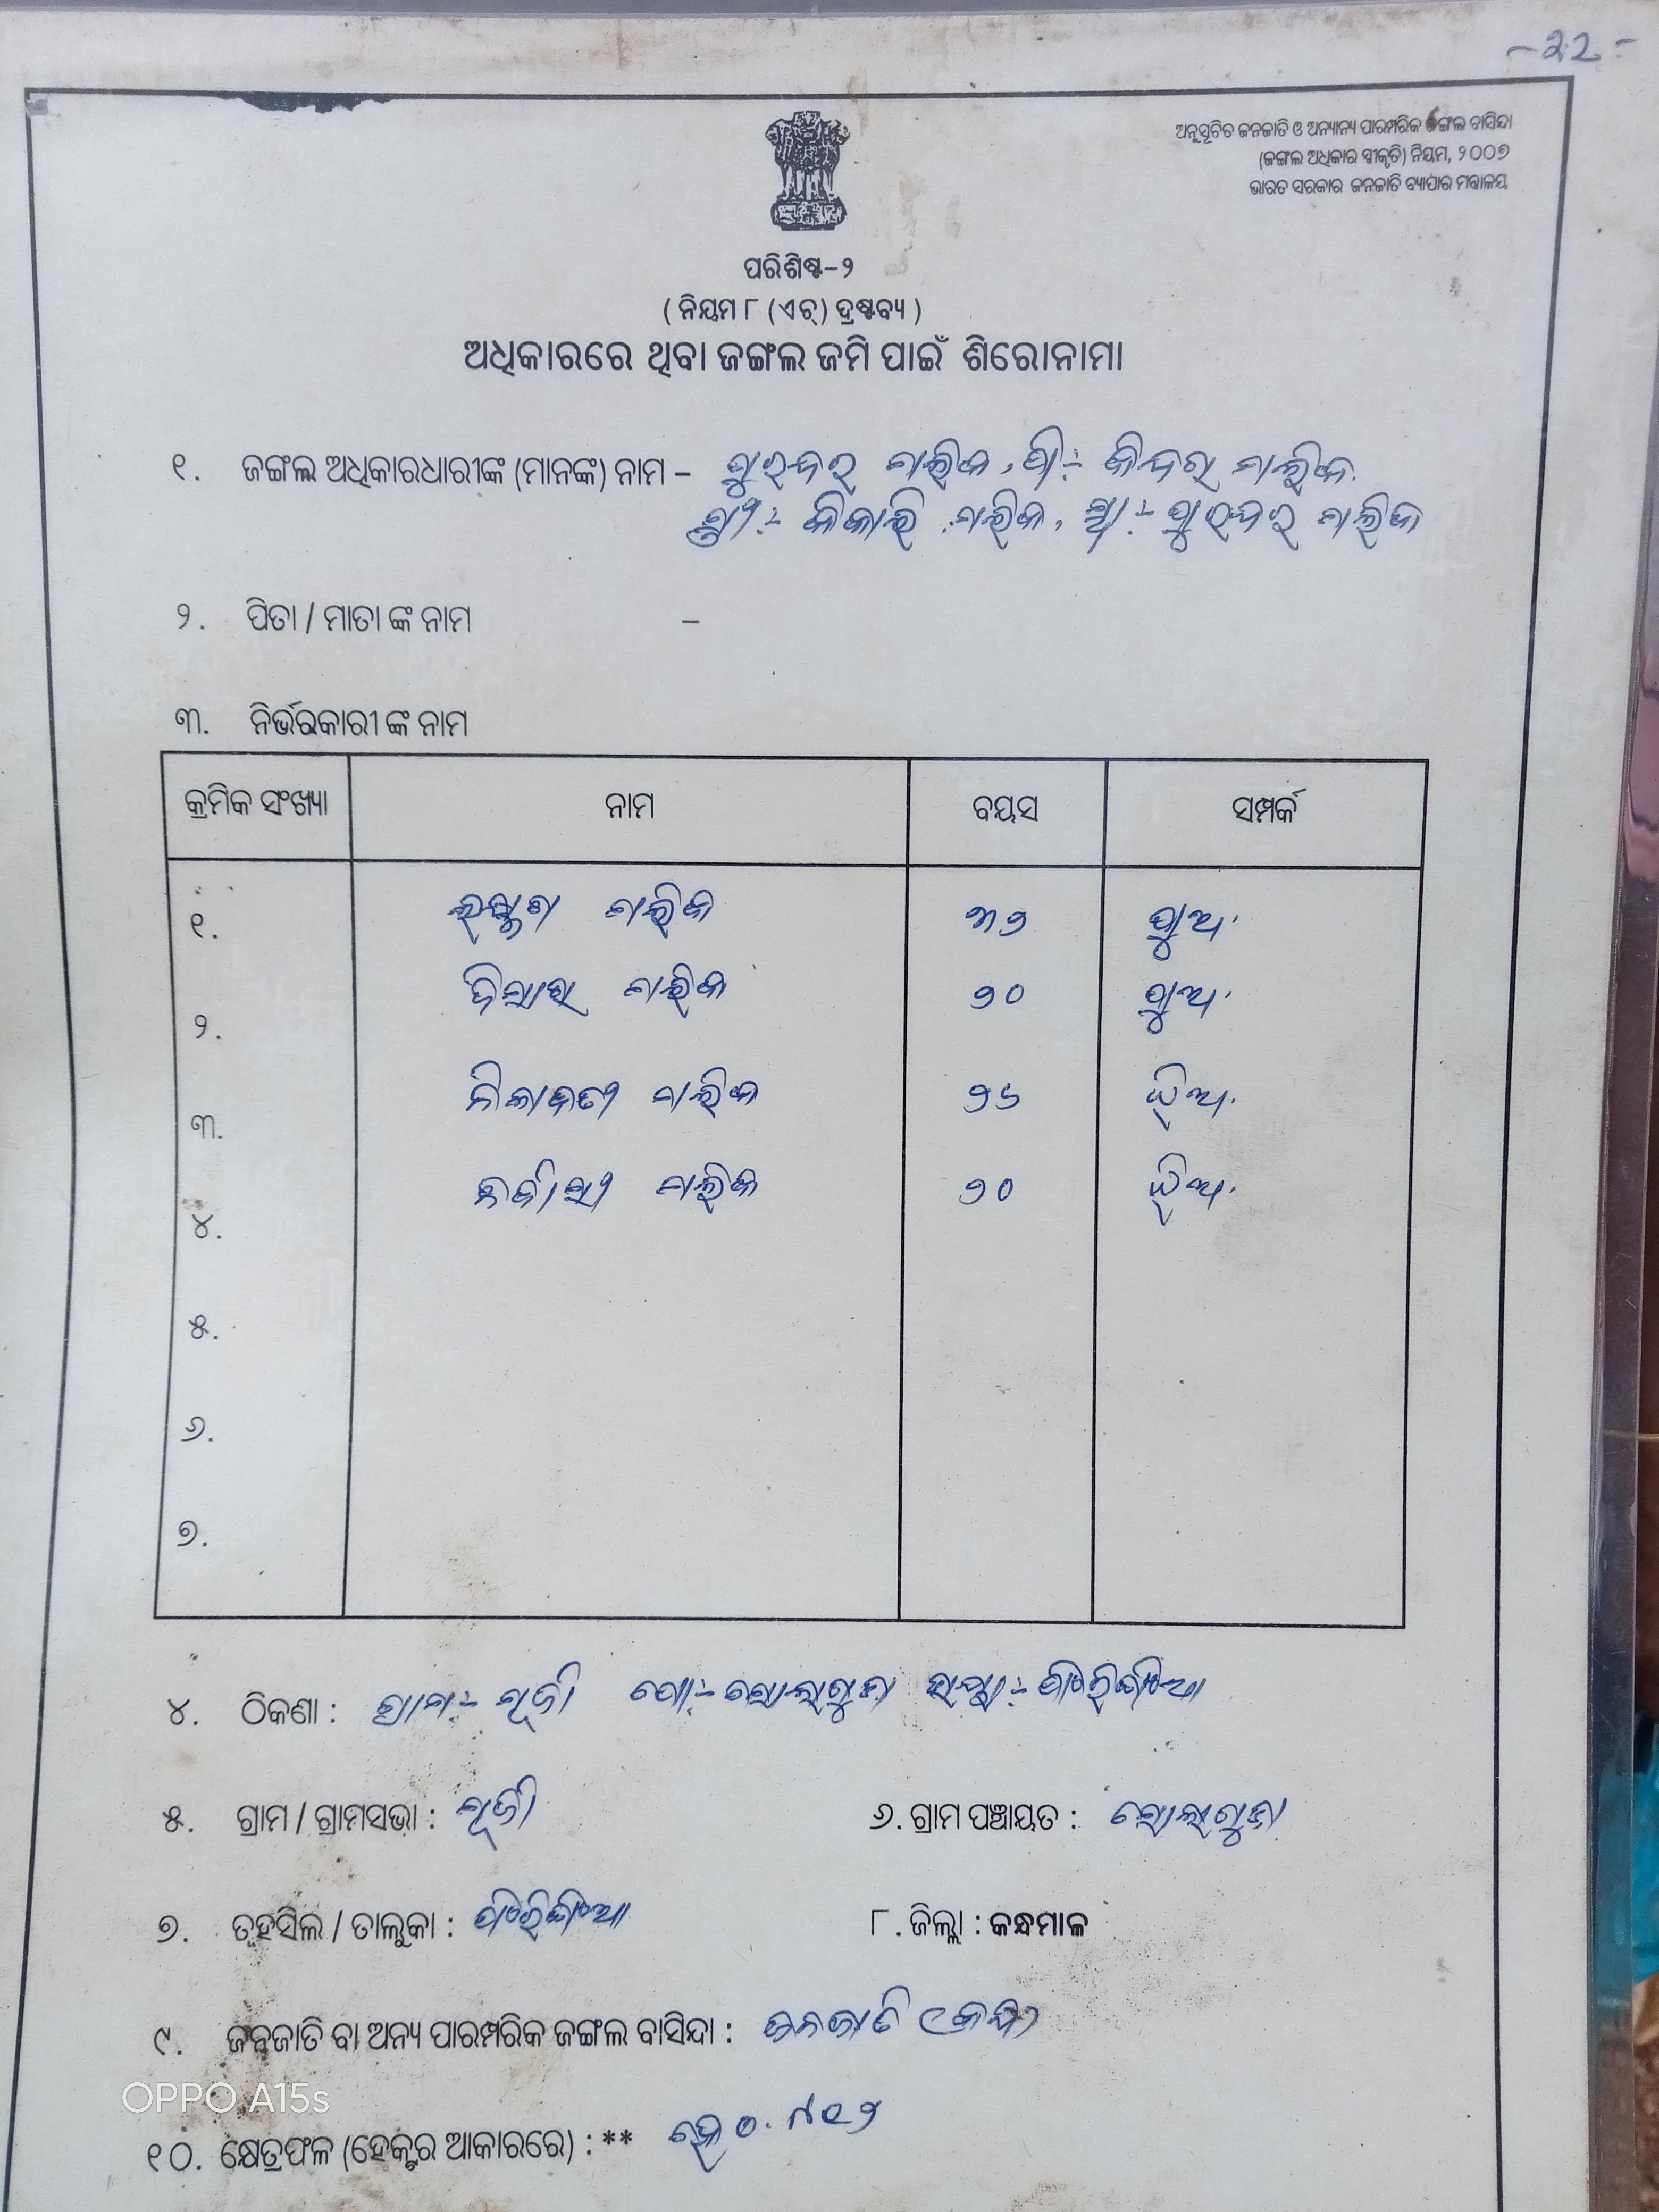 -22-
ଅନୁସୂଚିତ ଜନଜାତି ଓ ଅନ୍ୟାନ୍ୟ ପାରମ୍ପରିକ ଜଙ୍ଗଲ ବାସିନ୍ଦା
(ଜଙ୍ଗଲ ଅଧିକାର ସ୍ୱୀକୃତି) ନିୟମ, ୨୦୦୭
ଭାରତ ସରକାର ଜନଜାତି ବ୍ୟାପାର ମନ୍ତ୍ରାଳୟ
ପରିଶିଷ୍ଟ-୨
( ନିୟମ ୮ (ଏଚ୍) ଦ୍ରଷ୍ଟବ୍ୟ )
ଅଧିକାରରେ ଥିବା ଜଙ୍ଗଲ ଜମି ପାଇଁ ଶିରୋନାମା
୧. ଜଙ୍ଗଲ ଅଧିକାରଧାରୀଙ୍କ (ମାନଙ୍କ) ନାମ – ପୁରନ୍ଦର ମଲିକ, ପି:- କିନ୍ଦର ମଲିକ
ସ୍ତ୍ରୀ:- ମଲିକ, ସ୍ଵା:- ପୁରନ୍ଦର ମଲିକ
୨. ପିତା / ମାତା ଙ୍କ ନାମ –
୩. ନିର୍ଭରକାରୀ ଙ୍କ ନାମ
କ୍ରମିକ ସଂଖ୍ୟା ନାମ ବୟସ ସମ୍ପର୍କ
୧. ମଲିକ ୩୨ ପୁଅ
୨. ମଲିକ ୨୦ ପୁଅ
୩. ମଲିକ ୨୬ ଝିଅ
୪. ମଲିକ ୨୦ ଝିଅ
୫.
୬.
୭.
୪. ଠିକଣା : ଗ୍ରାମ:- ପୋ:- ଥାନା:- ଫିରିଙ୍ଗିଆ
୫. ଗ୍ରାମ / ଗ୍ରାମସଭା :
୬. ଗ୍ରାମ ପଞ୍ଚାୟତ :
୭. ତହସିଲ / ତାଲୁକା : ଫିରିଙ୍ଗିଆ
୮. ଜିଲ୍ଲା : କନ୍ଧମାଳ
୯. ଜନଜାତି ବା ଅନ୍ୟ ପାରମ୍ପରିକ ଜଙ୍ଗଲ ବାସିନ୍ଦା : ଜନଜାତି (କନ୍ଧ)
୧୦. କ୍ଷେତ୍ରଫଳ (ହେକ୍ଟର ଆକାରରେ) : ** ହେ ୦.
OPPO A15s